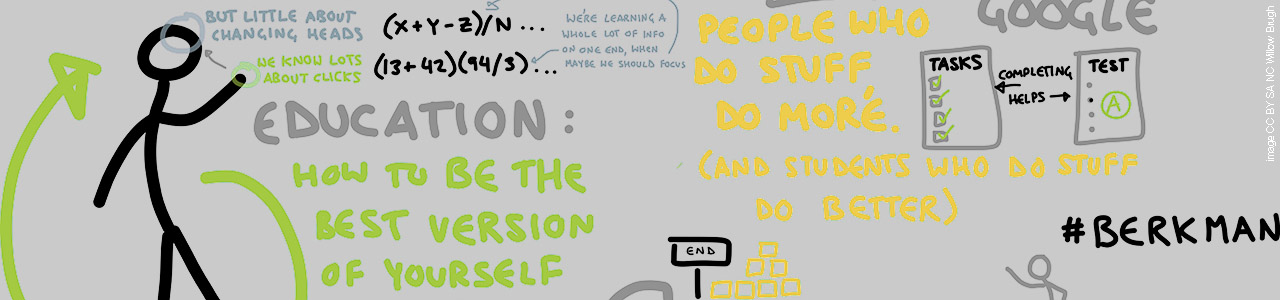 BUT LITTLE ABOUT
CHANGING HEADS
WE KNOW LOTS
ABOUT CLICKS
(X+Y-Z)/N ...
(13+42)(94/3)...
WE'RE LEARNING A
WHOLE LOT OF INFO
ON ONE END, WHEN
MAYBE WE SHOULD FOCUS
EDUCATION:
HOW TO BE THE
BEST VERSION
OF YOURSELF
PEOPLE WHO
DO STUFF
DO MORE.
(AND STUDENTS WHO DO STUFF
DO BETTER)
GOOGLE
TASKS
COMPLETING
HELPS
TEST
A
#BERKMAN
END
image CC BY SA NC Willow Brugh